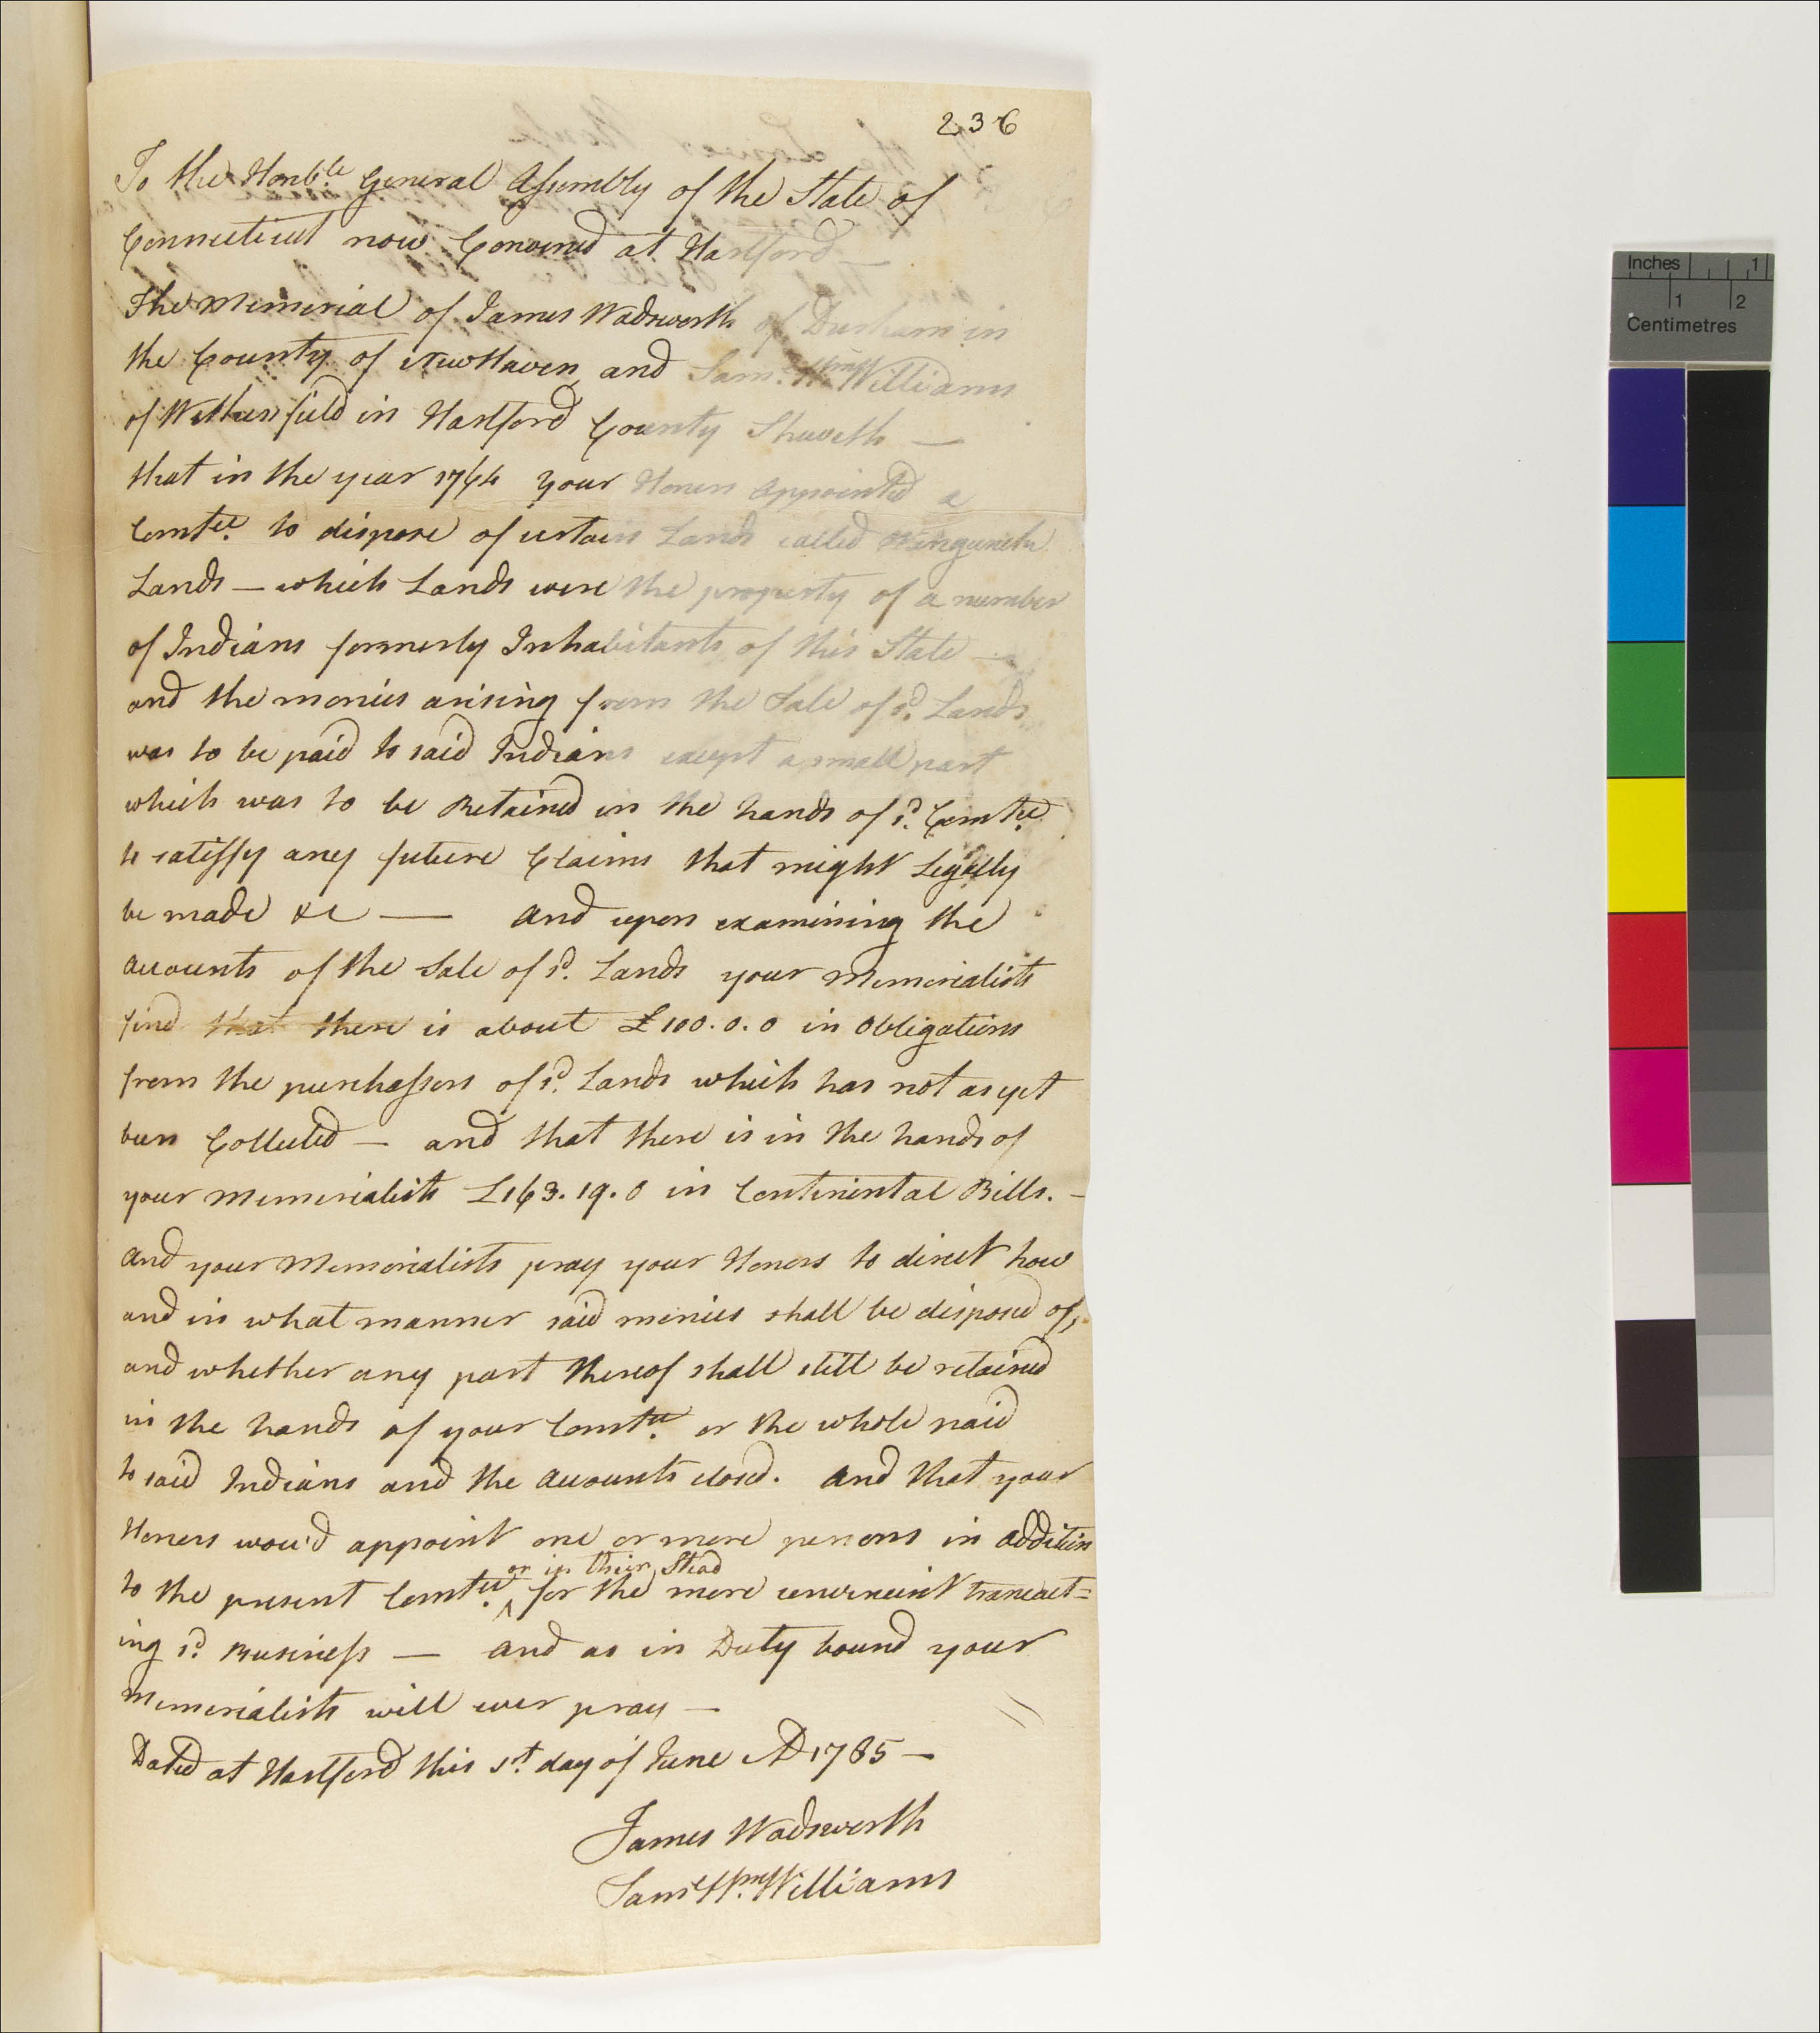 236
To the Honble General Assembly of the State of
Connecticut now Convened at Hartford —
The Memorial of James Wadsworth of Durham in
the County of New Haven and Saml. Wm. Williams
of Wethersfield in Hartford County Sheweth —
that in the year 1764 your Honors appointed a
Comtee. to dispose of certain Lands called
Lands — which Lands were the property of a number
of Indians formerly Inhabitants of this State —
and the monies arising from the Sale of sd. Lands
was to be paid to said Indians except a small part
which was to be Retained in the hands of sd. Comtee.
to satisfy any future Claims that might Legally
be made &c — and upon examining the
accounts of the Sale of sd. Lands your Memorialists
find that there is about £100.0.0 in Obligations
from the purchassers of sd. Lands which has not as yet
been Collected — and that there is in the hands of
your Memorialists £163.19.0 in Continental Bills. —
and your Memorialists pray your Honors to direct how
and in what manner said monies shall be disposed of,
and whether any part thereof shall still be retained
in the hands of your Comtee. or the whole paid
to said Indians and the accounts closed. And that your
Honors wou'd appoint one or more persons in addition
or in their Stead
to the present Comtee. ^ for the more convenient transact=
ing sd. Business — and as in Duty bound your
Memorialists will ever pray —
Dated at Hartford this 1st. day of June AD 1785 —
James Wadsworth
Saml Wm. Williams
Inches 1
1 2
Centimetres